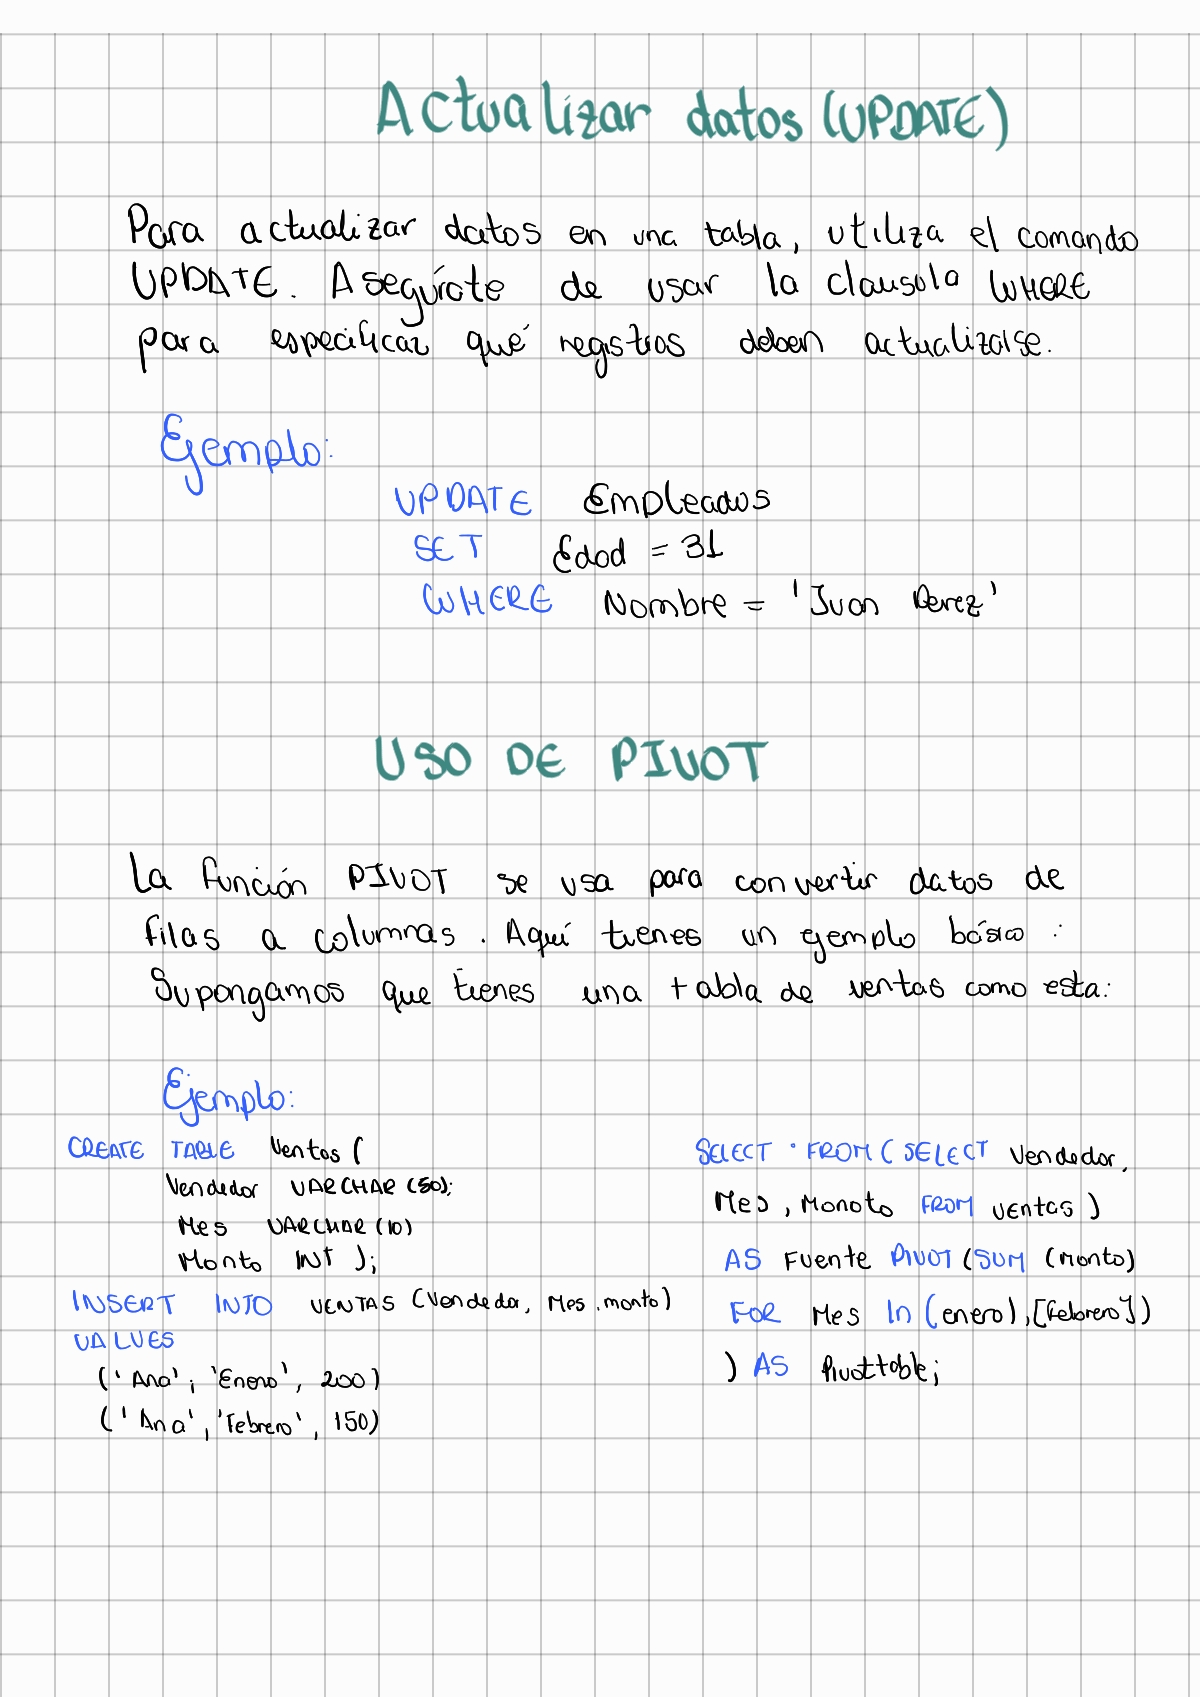 Actualizar datos (UPDATE)
Para actualizar datos en una tabla, utiliza el comando
UPDATE. Asegúrate de usar la clausula WHERE
para especificar qué registros deben actualizarse.
Ejemplo:
UPDATE Empleados
SET Edad = 31
WHERE Nombre = 'Juan Perez'
USO DE PIVOT
La función PIVOT se usa para convertir datos de
filas a columnas. Aquí tienes un ejemplo básico :
Supongamos que tienes una tabla de ventas como esta:
Ejemplo:
CREATE TABLE Ventas (
Vendedor VARCHAR (50);
Mes VARCHAR (10)
Monto INT );
INSERT INTO VENTAS (Vendedor, Mes.monto)
VALUES
('Ana'; 'Enero', 200)
('Ana', 'Febrero', 150)
SELECT · FROM ( SELECT Vendedor,
Mes, Monoto FROM ventas )
AS Fuente PIVOT (SUM (monto)
FOR Mes In (enero),[febrero])
) AS Pivottable;